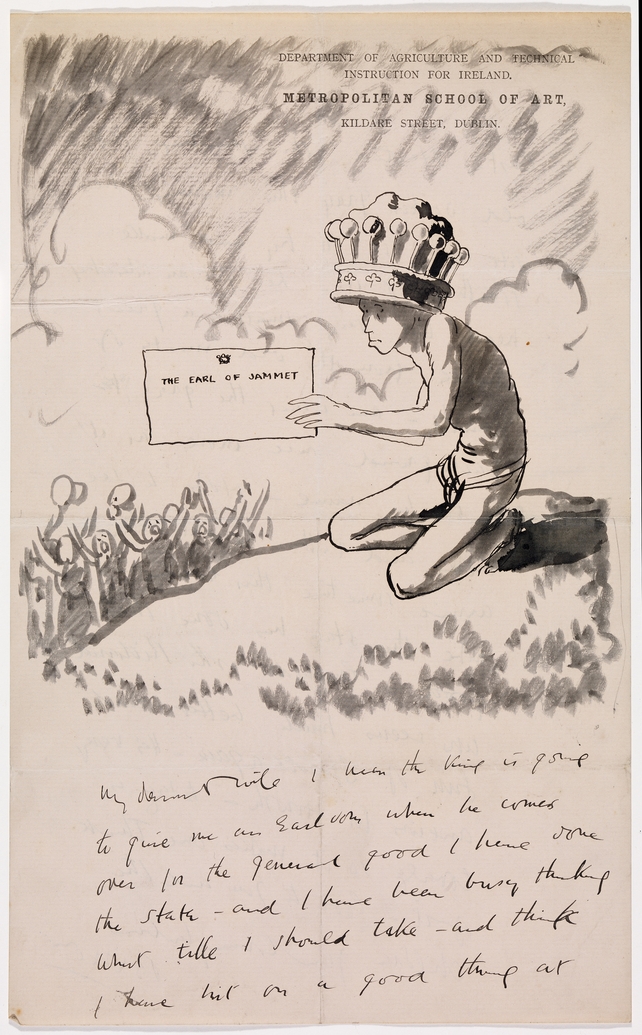 DEPARTMENT OF AGRICULTURE AND TECHNICAL
INSTRUCTION FOR IRELAND.
METROPOLITAN SCHOOL OF ART,
KILDARE STREET, DUBLIN.
THE EARL OF JAMMET
My dearest wife I hear the King is going
to give me an Earldom when he comes
over for the general good I have done
the state - and I have been busy thinking
what title I should take - and think
I have hit on a good thing at